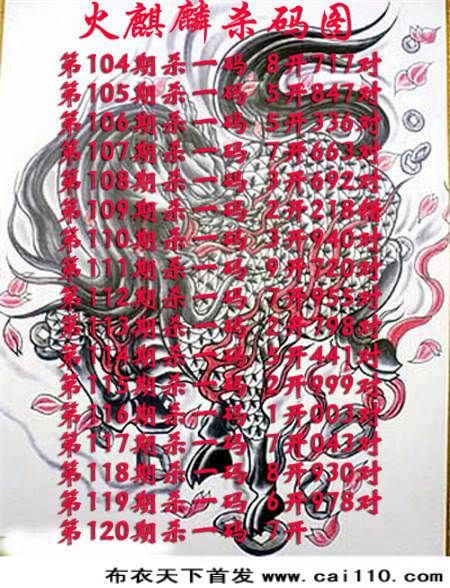 火麒麟杀码图
第104期杀一码 8开717对
第105期杀一码 5开847对
第106期杀一码 5开336对
第107期杀一码 7开663对
第108期杀一码 3开692对
第109期杀一码 2开218错
第110期杀一码 3开940对
第111期杀一码 9开720对
第112期杀一码 7开955对
第113期杀一码 2开798对
第114期杀一码 5开441对
第115期杀一码 2开999对
第116期杀一码 1开003对
第117期杀一码 7开043对
第118期杀一码 8开930对
第119期杀一码 6开978对
第120期杀一码 7开
布衣天下首发 www.cai110.com